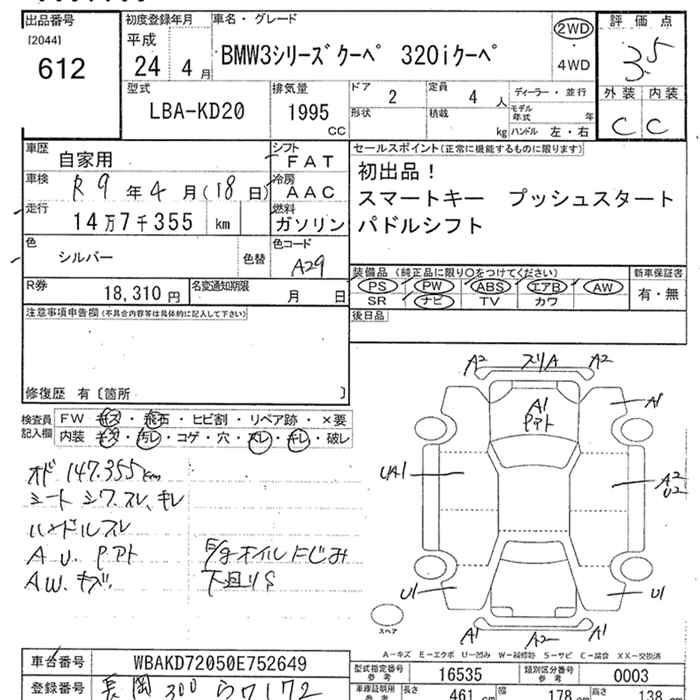 出品番号
[2044]
612
初度登録年月
平成
24 4月
車名・グレード
BMW3シリーズクーペ 320iクーペ
2WD
4WD
評価点
3.5
外装 内装
C C
型式
LBA-KD20
排気量
1995
CC
ドア
2
定員
4人
形状
積載
kg
ディーラー・並行
モデル年式 年
ハンドル 左・右
車歴
自家用
シフト
FAT
車検
R9年4月(18日)
冷房
AAC
走行
14万7千355 km
燃料
ガソリン
色
シルバー
色替
色コード
A29
R券
18,310円
名変通知期限
月 日
セールスポイント(正常に機能するものに限ります)
初出品!
スマートキー プッシュスタート
パドルシフト
装備品(純正品に限り○をつけてください)
PS PW ABS エアB AW
SR ナビ TV カワ
新車保証書
有・無
後日品
注意事項申告欄(不具合内容等は具体的に記入して下さい)
修復歴 有〔箇所 〕
検査員記入欄
FW キズ・飛石・ヒビ割・リペア跡・×要
内装 キズ・汚レ・コゲ・穴・スレ・キレ・破レ
オド 147.355km
シート シワ.スレ.キレ
ハンドルスレ
A U. Pアト
AW. キズ.
E/gオイルにじみ
下廻りS
A2 スリA A2
A1
Pアト
A1
UA1
A2
U2
U1
U1
A1 A2 A1
スペア
A－キズ E－エクボ U－凹み W－補修跡 S－サビ C－腐食 XX－交換済
車台番号
WBAKD72050E752649
型式指定番号
参考
16535
類別区分番号
参考
0003
登録番号
長岡 300 ら7172
車庫証明用
参考
長さ 461 cm 幅 178 cm 高さ 138 cm